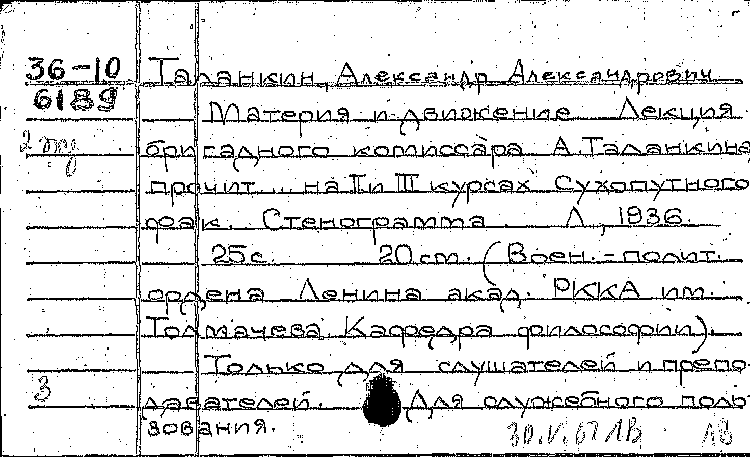 36-10 Таланкин, Александр Александрович
6189 Материя и движение Лекция
бригадного комиссара А. Таланкина
прочит... на II и III курсах Сухопутного
фак. Стенограмма. Л., 1936.
25 с. 20 см. (Воен.-полит.
ордена Ленина акад. РККА им.
Толмачева. Кафедра философии).
Только для слушателей и препо-
3 давателей. Для служебного поль-
зования.
30.V.67